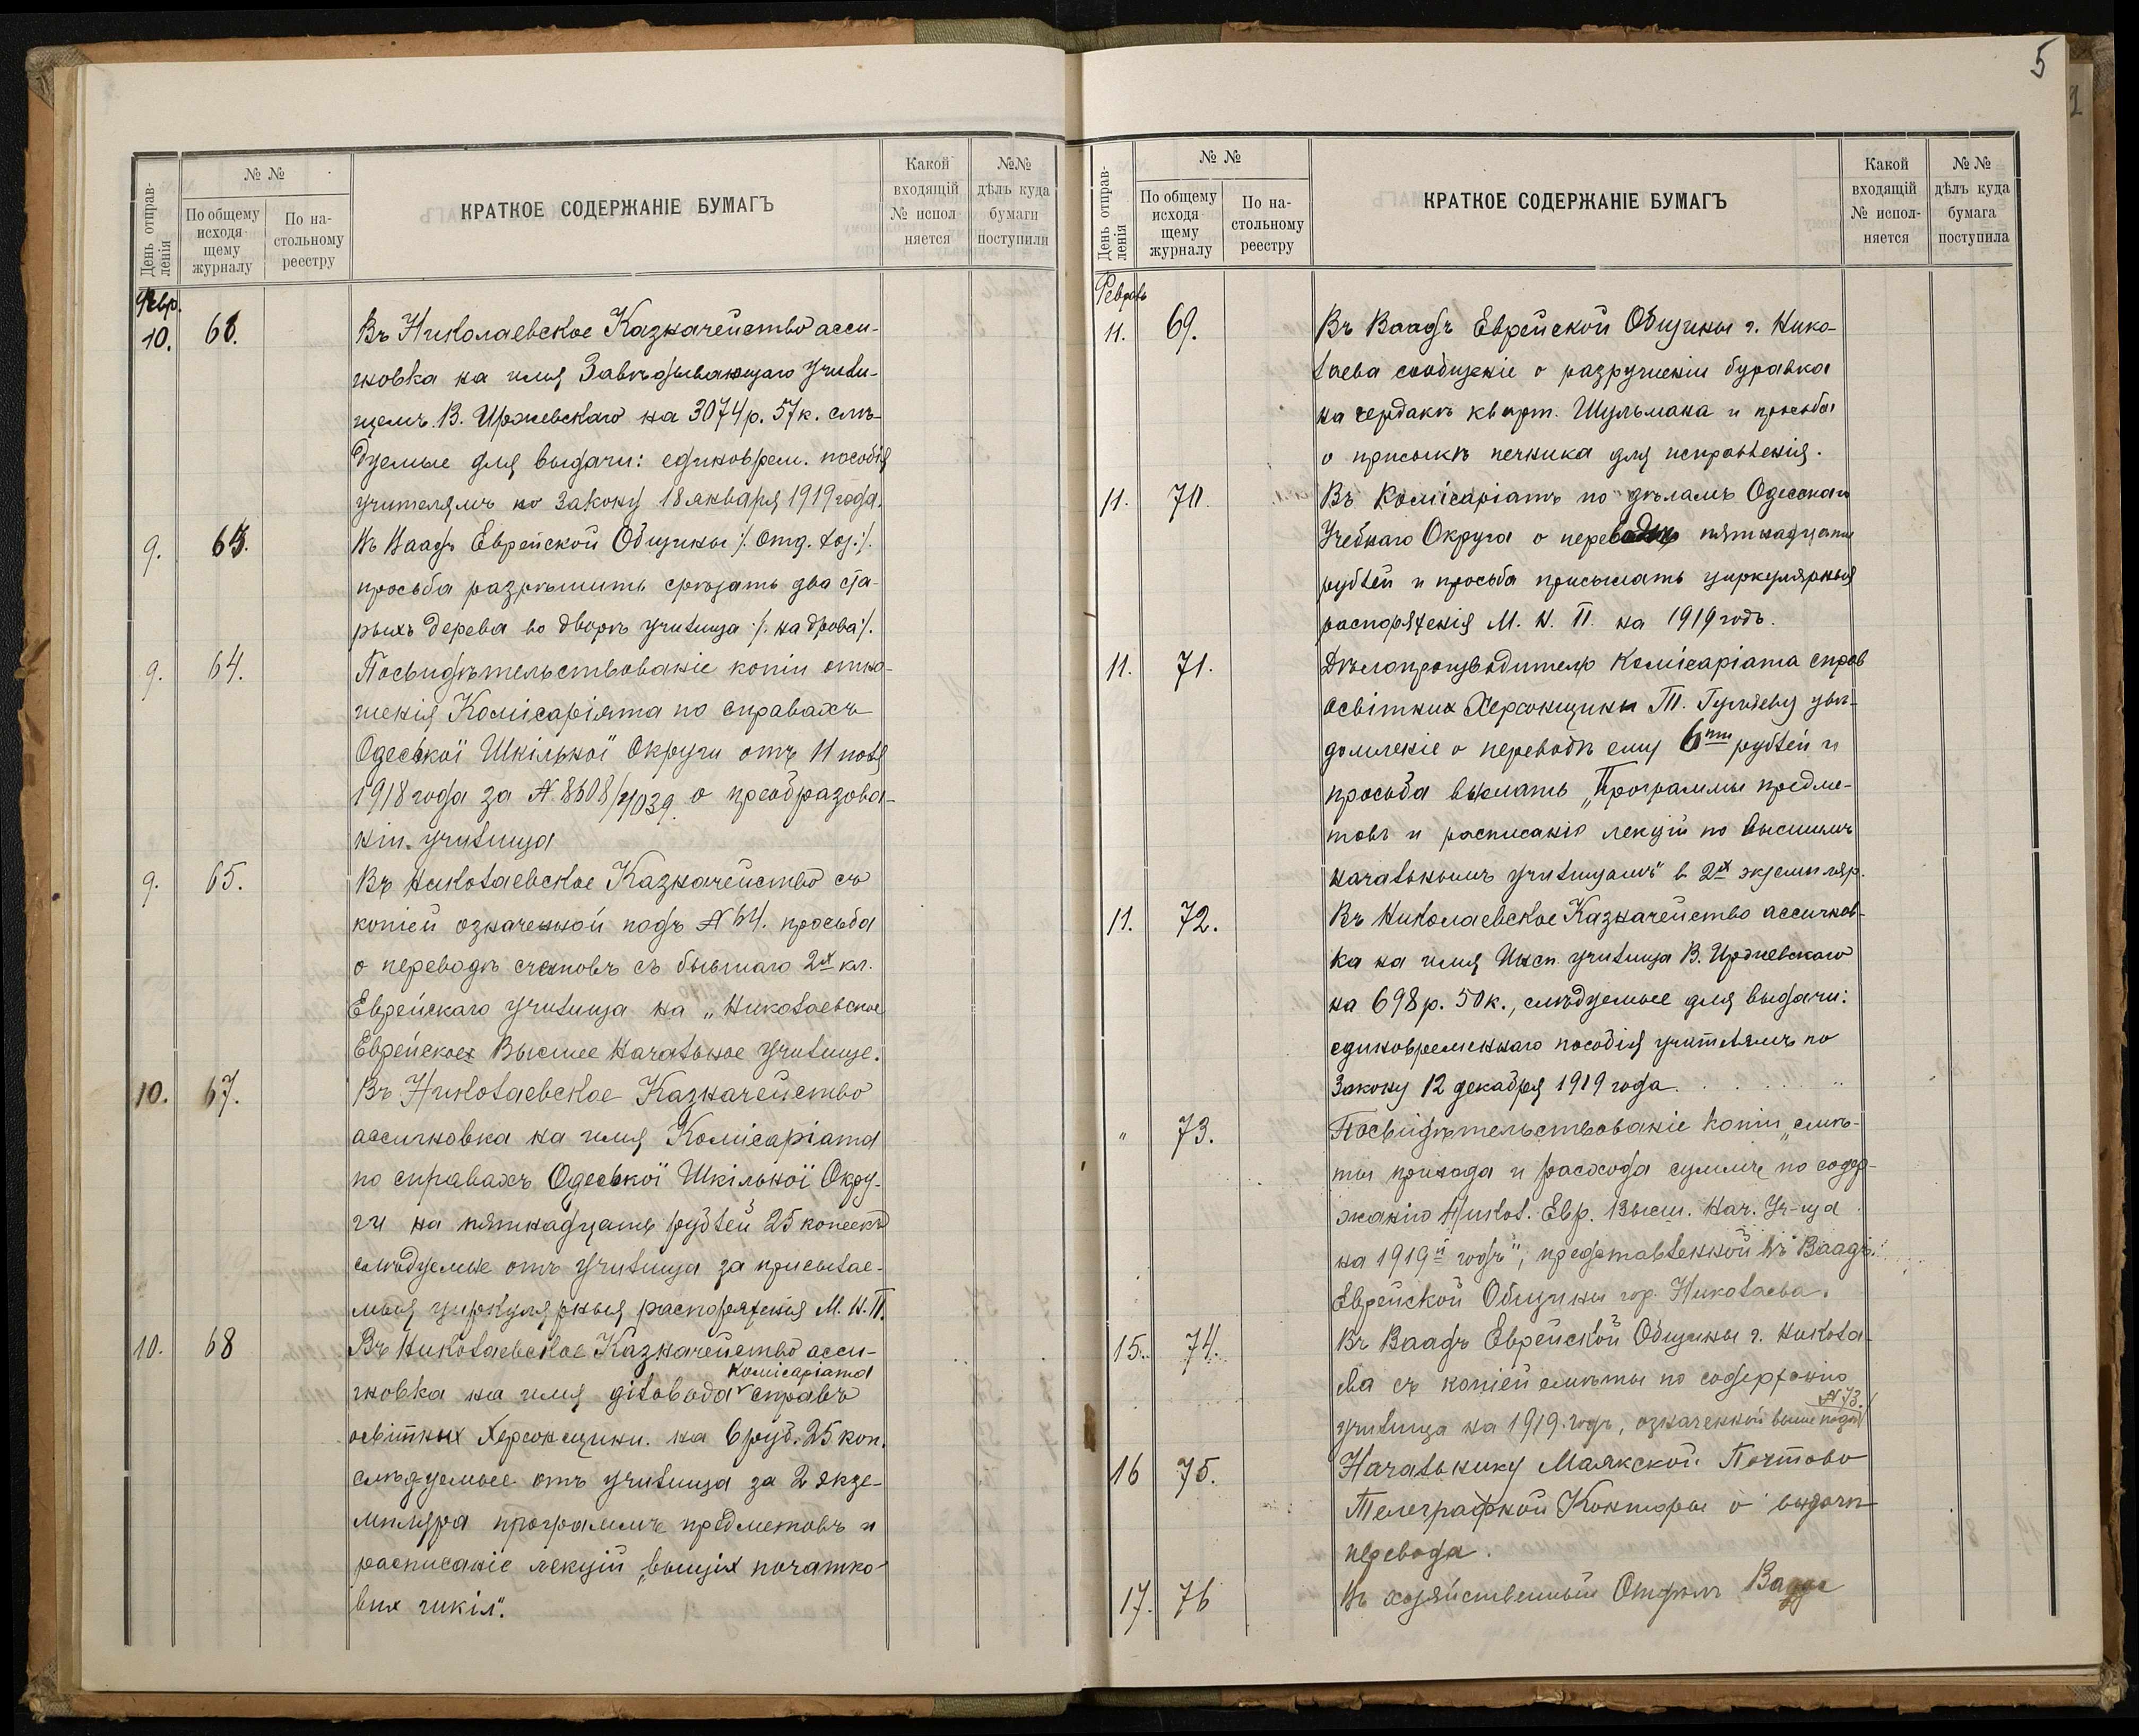 5
День отправ-
ленія
№ №
По общему
исходя-
щему
журналу
По на-
стольному
реестру
КРАТКОЕ СОДЕРЖАНІЕ БУМАГЪ
Какой
входящій
№ испол
няется
№№
дѣлъ куда
бумаги
поступили
Февр.
10. 66. Въ Николаевское Казначейство асси-
гновка на имя Завѣдывающаго учили-
щемъ В. Иржевскаго на 3074 р. 57 к. слѣ-
дуемые для выдачи: единоврем. пособія
учителямъ по закону 18 января 1919 года.
9. 63. Въ Ваадъ Еврейской Общины /. Отд. хоз. /.
просьба разрѣшить срѣзать два ста-
рыхъ дерева во дворѣ училища /. на дрова /.
9. 64. Посвидѣтельствованіе копіи отно-
шенія Комісаріята по справахъ
Одеської Шкільної Округи отъ 11 ноя
1918 года за № 8608/4039 о преобразова-
ніи училища
9. 65. Въ Николаевское Казначейство съ
копіей означенной подъ № 64. просьба
о переводѣ счетовъ съ бывшаго 2х кл.
Еврейскаго училища на „Николаевское
Еврейское Высшее Начальное Училище.
10. 67. Въ Николаевское Казначейство
ассигновка на имя Комісаріата
по справахъ Одеської Шкільної Окру-
ги на пятнадцать рублей 25 копеекъ
слѣдуемые отъ училища за присылае-
мыя циркулярныя распоряженія М. Н. П.
10. 68 Въ Николаевское Казначейство асси-
Комісаріата
гновка на имя діловода справъ
освітних Херсонщини. на 6 руб. 25 коп.
слѣдуемые отъ училища за 2 экзе-
мпляра программъ предметовъ и
расписаніе лекцій „вищих початко-
вих шкіл“.
День отправ-
ленія
№ №
По общему
исходя
щему
журналу
По на-
стольному
реестру
КРАТКОЕ СОДЕРЖАНІЕ БУМАГЪ
Какой
входящій
№ испол-
няется
№ №
дѣлъ куда
бумага
поступила
Февраль
11. 69. Въ Ваадъ Еврейской Общины г. Нико-
лаева сообщеніе о разрушеніи буравка
на чердакѣ кварт. Шульмана и просьба
о присылкѣ печника для исправленія.
11. 70. Въ Комісаріатъ по дѣламъ Одесскаго
Учебнаго Округа о переводѣ пятнадцати
рублей и просьба присылать циркулярныя
распоряженія М. Н. П. на 1919 годъ.
11. 71. Дѣлопроизводителю Комісаріата справ
освітних Херсонщини Т. увѣ-
домленіе о переводѣ ему 6ти рублей и
просьба выслать „Программы предме-
товъ и расписанію лекцій по высшимъ
начальнымъ училищамъ“ в 2х экземпляр.
11. 72. Въ Николаевское Казначейство ассигнов-
ка на имя Инсп. училища В. Иржевскаго
на 698 р. 50 к., слѣдуемые для выдачи:
единовременнаго пособія учителямъ по
Закону 12 декабря 1919 года
" 73. Посвидѣтельствованіе копіи „смѣ-
ты прихода и расхода суммъ по содер-
жанію Никол. Евр. Высш. Нач. Уч-ща
на 1919й годъ“, представленной въ Ваадъ
Еврейской Общины гор. Николаева.
15. 74. Въ Ваадъ Еврейской Общины г. Никола-
ева съ копіей смѣты по содержанію
№ 73.
училища на 1919. годъ, означенной выше подъ
16 75. Начальнику Маякской Почтово
Телеграфной Конторы о выдачѣ
перевода.
17. 76 Въ хозяйственный Отдѣлъ Ваада